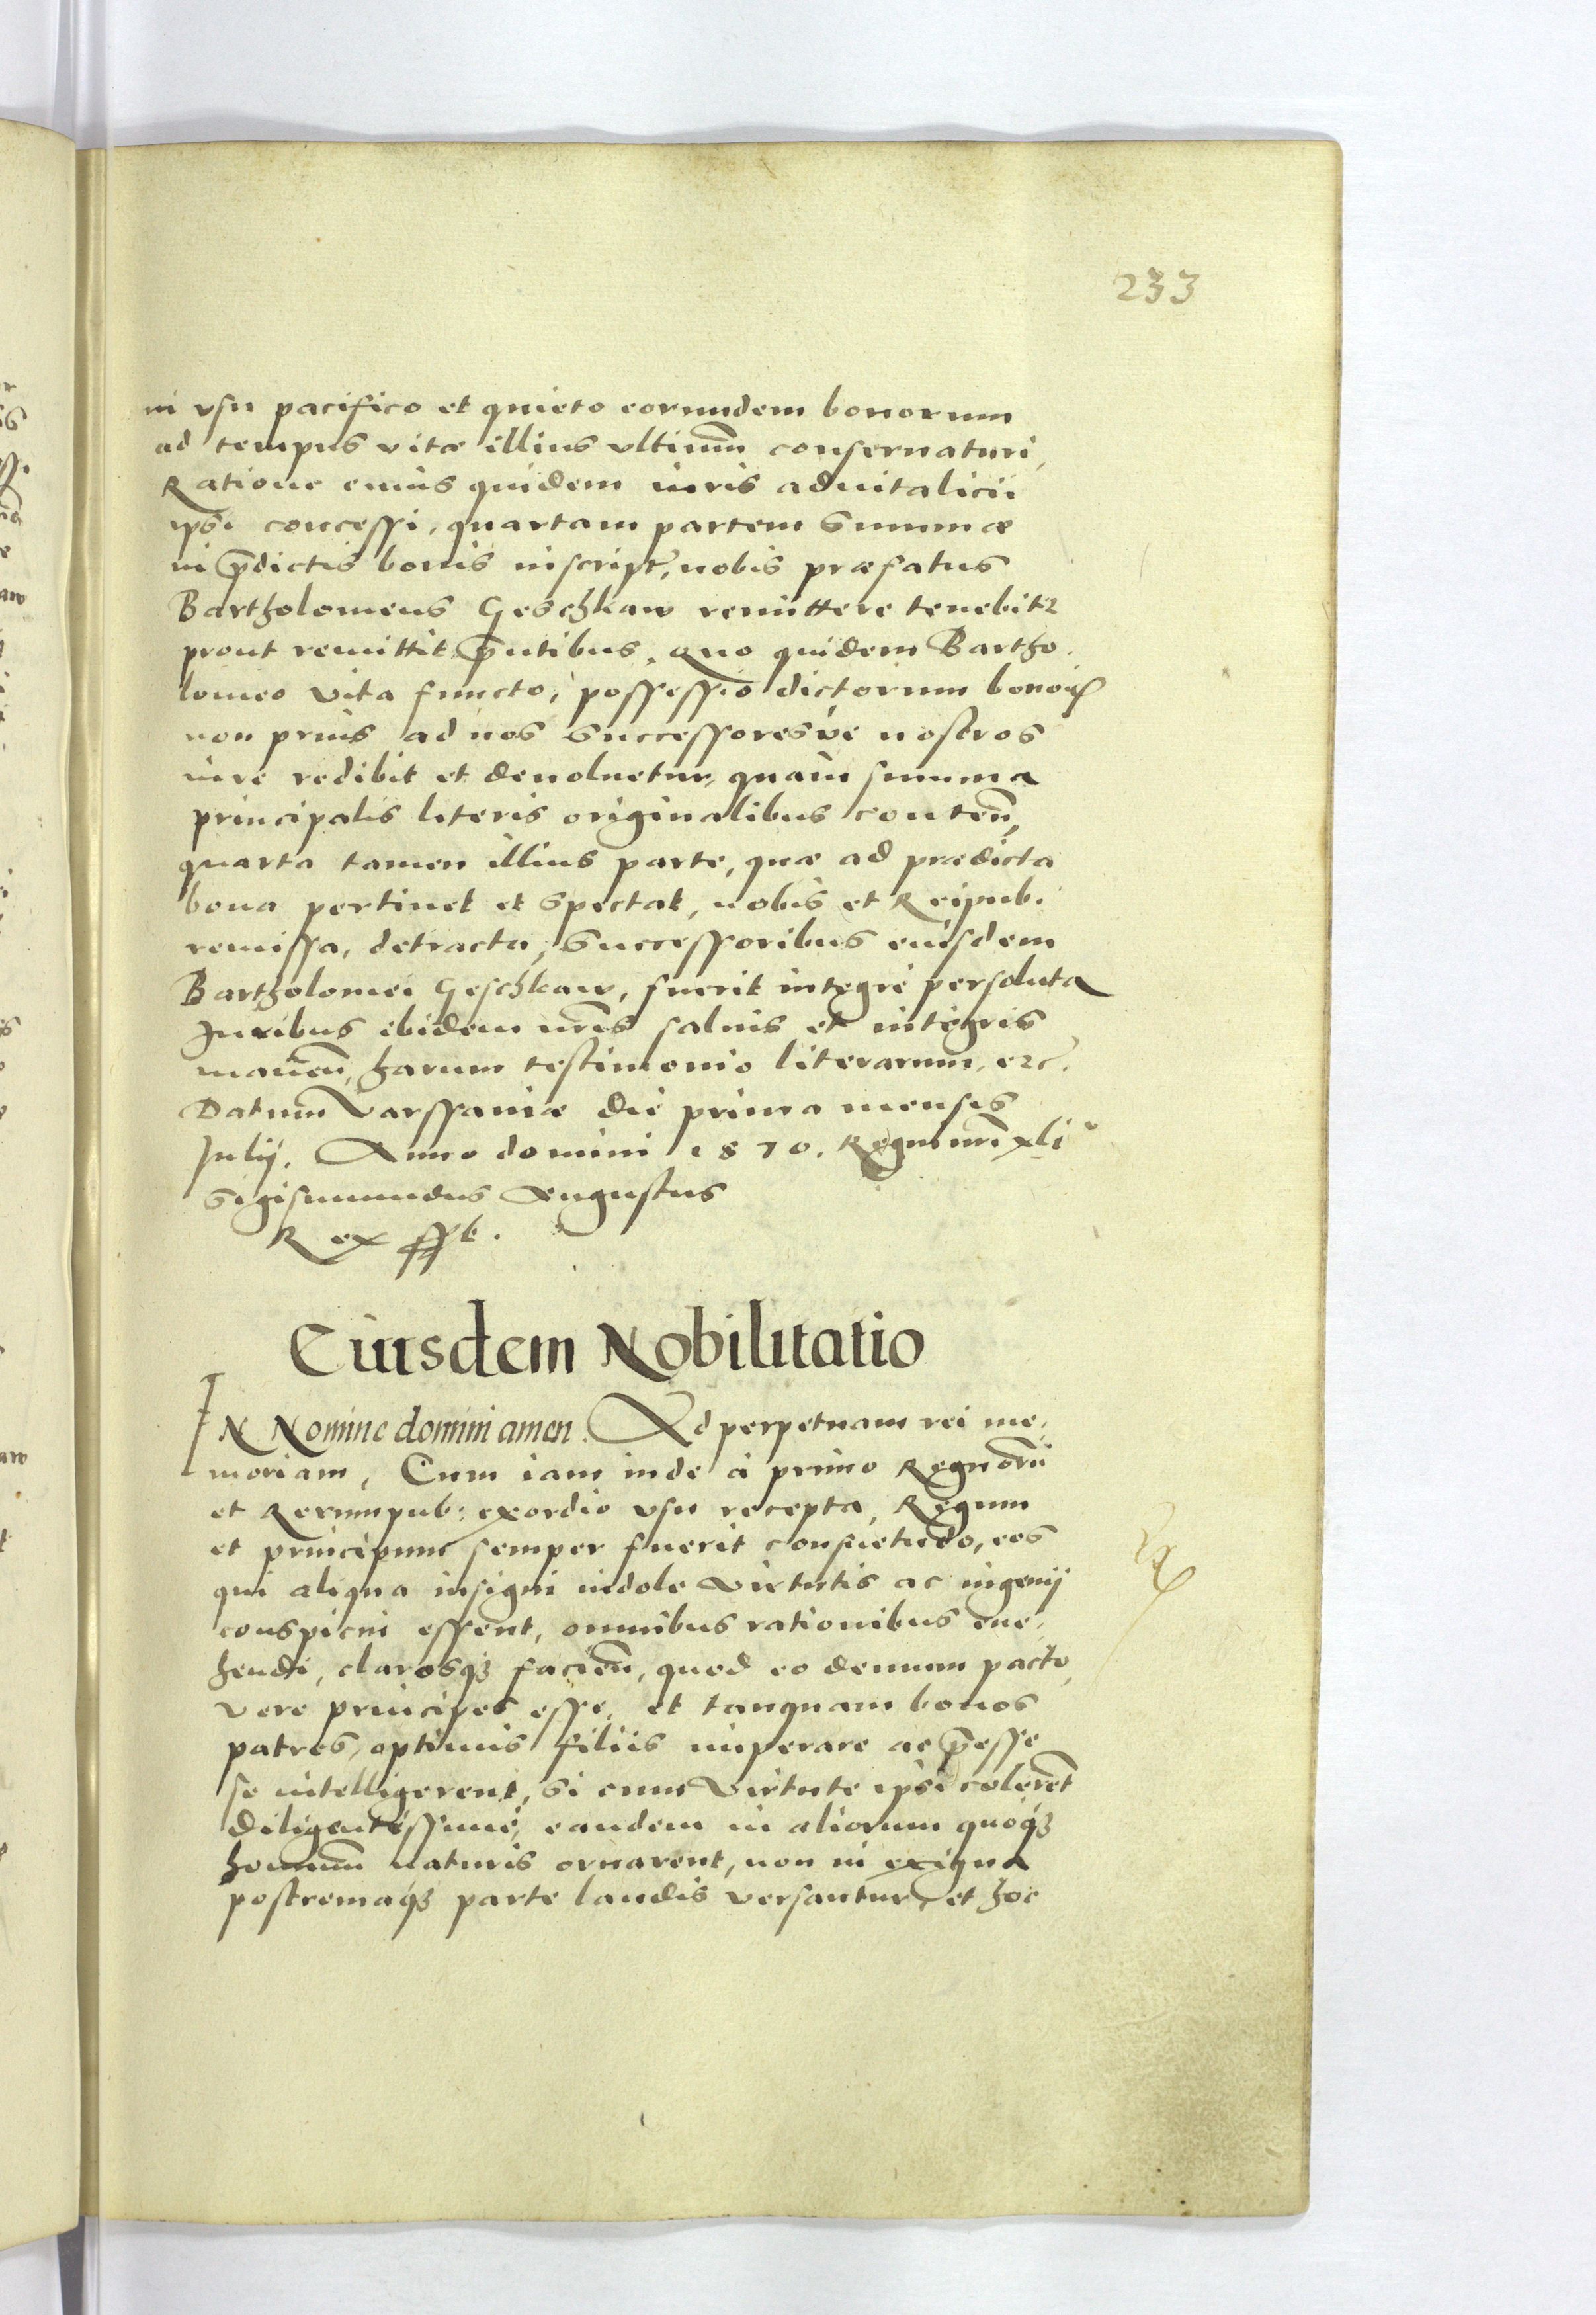 233
in vsu pacifico et quieto eorundem bonorum
ad tempus vitæ illius vltimum conseruaturi,
Ratione cuius quidem iuris aduitalicii
ipsi concessi, quartam partem summæ
in p̄dictis bonis inscript, nobis præfatus
Bartholomeus Geschkaw remittere tenebitr
prout remittit p̄ntibus, Quo quidem Bartho.
lomeo vita functo, possessio dictorum bonoꝝ
non prius ad nos successoresúe nostros
iure redibit et deuoluetur, quàm summa
principalis literis originalibus conten̄,
quarta tamen illius parte, quæ ad prædicta
bona pertinet et spectat, nobis et Reipub.
remissa, detracta, successoribus eiusdem
Bartholomei Geschkaw, fuerit integrè persoluta
Iuribus ibidem nr̄is saluis et integris
manen̄, harum testimonio literarum, etc.
Datum Varssauiæ die prima mensis
Iulij. Anno domini 1570. Regni nr̄i xli°
Sigismundus Augustus
Rex sst.
Eiusdem Nobilitatio
IN Nomine domini amen. Ad perpetuam rei me,
moriam, Cum iam inde à primo Regnorū
et Rerumpub: exordio vsu recepta, Regum
et principum semper fuerit consuetudo, eos
qui aliqua insigni indole virtutis ac ingenij
conspicui essent, omnibus rationibus eue,
hendi, clarosqꝫ facien̄, quod eo demum pacto,
vere principes esse, et tanquam bonos
patres, optimis filiis imperare ac p̄esse
se intelligerent, si cum virtute ipsi colerēt
diligentissimè, eandem in aliorum quoqꝫ
hominum naturis ornarent, non in exigua
postremaqꝫ parte laudis versantur, et hoc